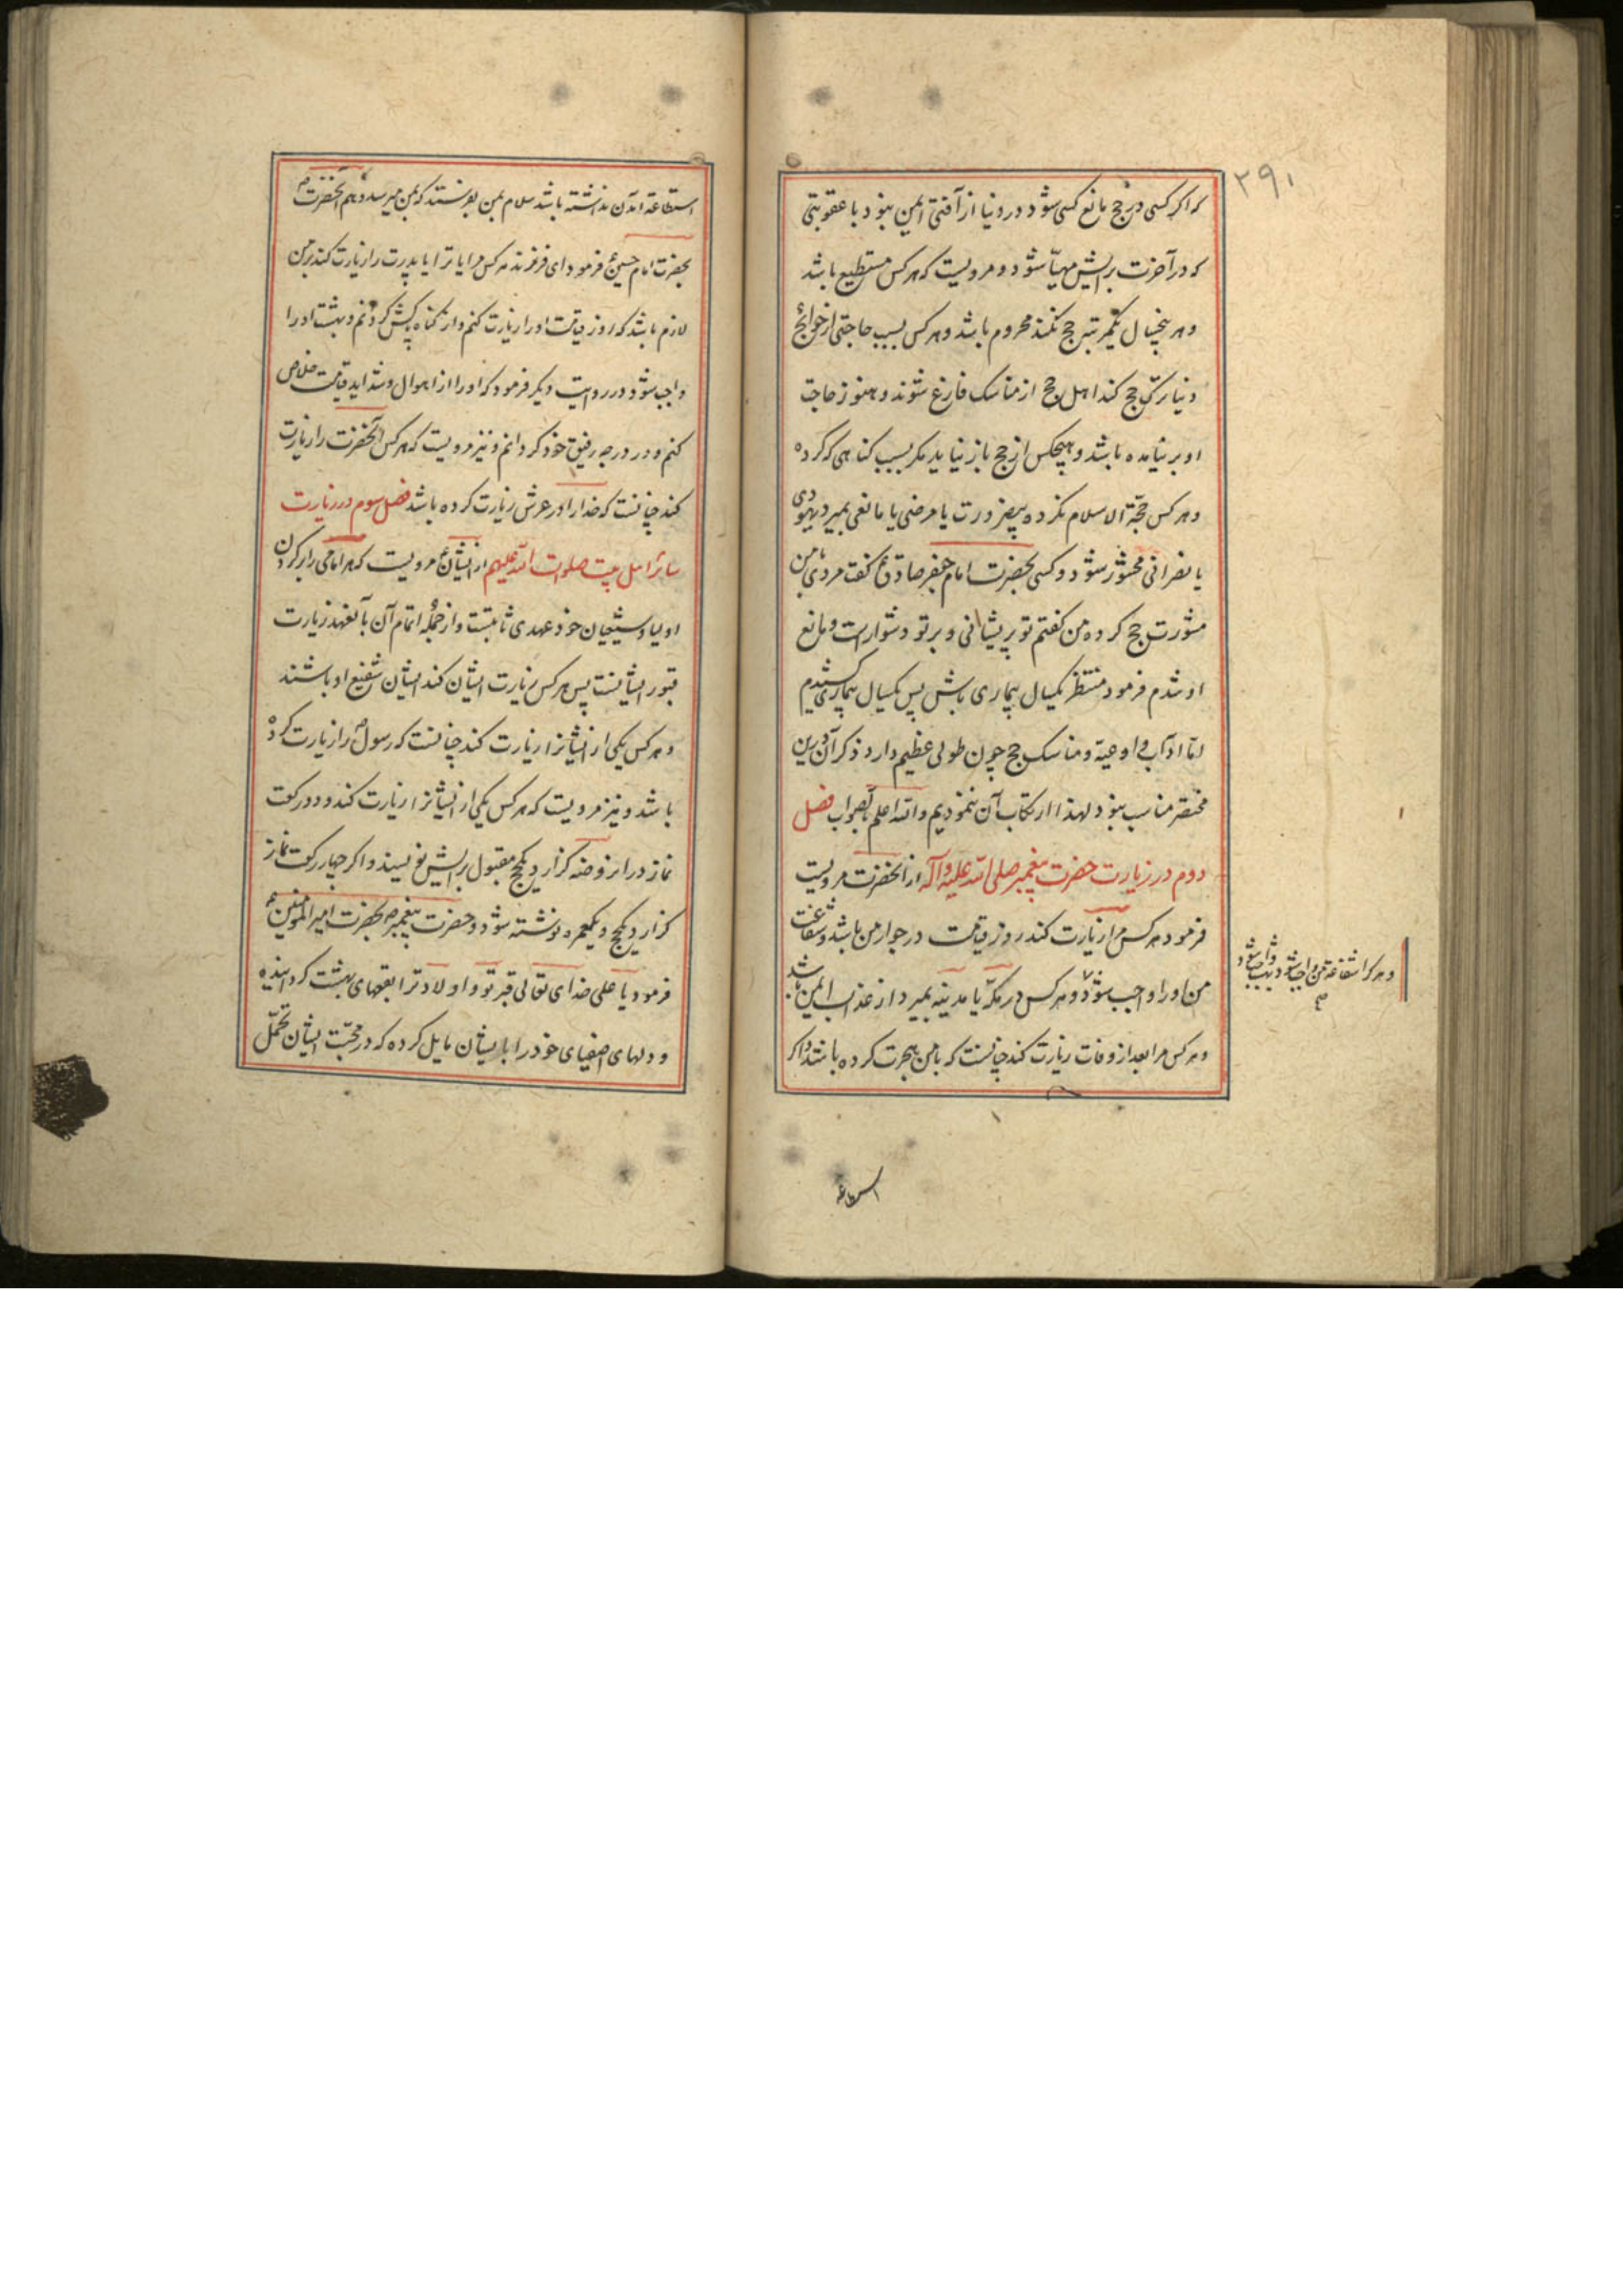 ۲۹۱
که اگر کسی در حج مانع کسی شود در دنیا از آفتی ایمن نبود با عقوبتی
که در آخرت برایش مهیّا شود و مرویست که هر کس مستطیع باشد
و هر پنجسال یکمرتبه حج نکند محروم باشد و هر کس بسبب حاجتی از حوائج
دنیا ترک حج کند اهل حج از مناسک فارغ شوند و هنوز حاجت
او بر نیامده باشد و هیچکس از حج باز نیاید مکر بسبب کناهی که کرده
و هر کس حجّة الاسلام نکرده بیضرورت یا مرضی یا مانعی بمیرد یهودی
یا نصرانی محشور شود و کسی بحضرت امام جعفر صادق ع کفت مردی با من
مشورت حج کرد من کفتم تو پریشانی و بر تو دشوار است و مانع
او شدم فرمود منتظر یکسال بیماری باش پس یکسال بیماری کشیدم
امّا آداب و ادعیّه و مناسک حج چون طولی عظیم دارد ذکر آن درین
مختصر مناسب نبود لهذا ارتکاب آن ننمودیم والله اعلم بالصواب فصل
دوم در زیارت حضرت پیغمبر صلی الله علیه و آله از آنحضرت مرویست
فرمود هر کس مرا زیارت کند روز قیامت در جوار من باشد و شفاعت
من او را واجب شود و هر کس در مکّه یا مدینه بمیرد از عذاب ایمن باشد
و هر کس مرا بعد از وفات زیارت کند چنانست که با من هجرت کرده باشد و اکر
و هر کرا شفاعت من واجب شود بهشت واجب شود
استطاعه
استطاعة آمدن نداشته باشد سلام بمن بفرستد که بمن میرسد و هم آنحضرت ص
بحضرت امام حسین ع فرمود ای فرزند هر کس مرا یا ترا یا پدرت را زیارت کند بر من
لازم باشد که روز قیامت او را زیارت کنم و از کناه پاکش کردانم و بهشت او را
واجب شود و در روایت دیکر فرمود که او را از اهوال و شداید قیامت خلاص
کنم و در درجه رفیق خود کردانم و نیز مرویست که هر کس آنحضرت را زیارت
کند چنانست که خدا را در عرش زیارت کرده باشد فصل سوم در زیارت
سائر اهل بیت صلوات الله علیهم از ایشان ع مرویست که هر امامی را بر کردن
اولیا و شیعیان خود عهدی ثابتست و از جمله اتمام آن بآنعهد زیارت
قبور ایشانست پس هر کس زیارت ایشان کند ایشان شفیع او باشند
و هر کس یکی از ایشانرا زیارت کند چنانست که رسول ص را زیارت کرده
باشد و نیز مرویست که هر کس یکی از ایشانرا زیارت کند و دو رکعت
نماز در انروضه کزارد یکحج مقبول برایش نویسند و اکر چهار رکعت نماز
کزارد یکحج و یکعمره نوشته شود و حضرت پیغمبر ص بحضرت امیر المؤمنین ع
فرمود یا علی خدای تعالی قبر تو و اولاد ترا بقعهای بهشت کردانیده
و دلهای اصفیای خود را با ایشان مایل کرده که در محبّت ایشان تحمّل